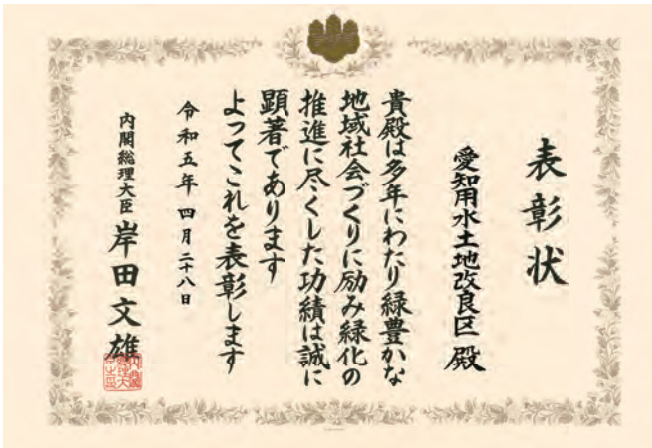 表彰状
愛知用水土地改良区 殿
貴殿は多年にわたり緑豊かな
地域社会づくりに励み緑化の
推進に尽くした功績は誠に
顕著であります
よってこれを表彰します
令和五年四月二十八日
内閣総理大臣 岸田文雄